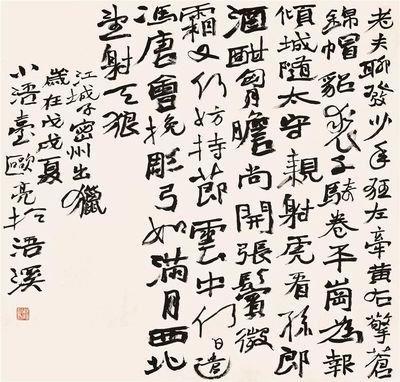 老夫聊發少年狂左牽黃右擎蒼
錦帽貂裘千騎卷平崗為報
傾城隨太守親射虎看孫郎
酒酣胸膽尚開張鬢微
霜又何妨持節雲中何日遣
馮唐會挽雕弓如滿月西北
望射天狼
江城子密州出獵
歲在戊戌夏
小浯臺歐亮於浯溪